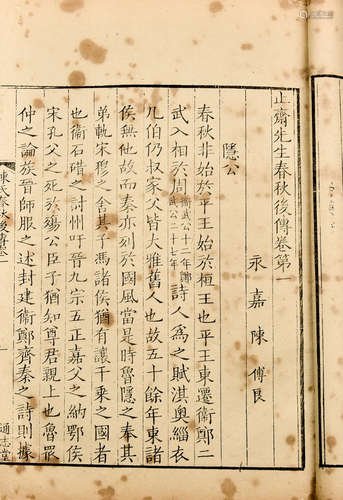 止齋先生春秋後傳卷第一
永嘉陳傅良
隱公
春秋非始於平王始於桓王也平王東遷衞鄭二
武入相於周衞武公十三年鄭武公二十七年詩人爲之賦淇奥緇衣
凡伯仍叔家父皆大雅舊人也故五十餘年東諸
侯無他故而秦亦列於國風當是時魯隱之奉其
弟軌宋穆之舍其子馮諸侯猶有讓千乘之國者
也衞石碏之討州吁晉九宗五正嘉父之納鄂侯
宋孔父之死於殤公臣子猶知尊君親上也魯眾
仲之論族晉師服之述封建衞鄭齊秦之詩則據
通志堂